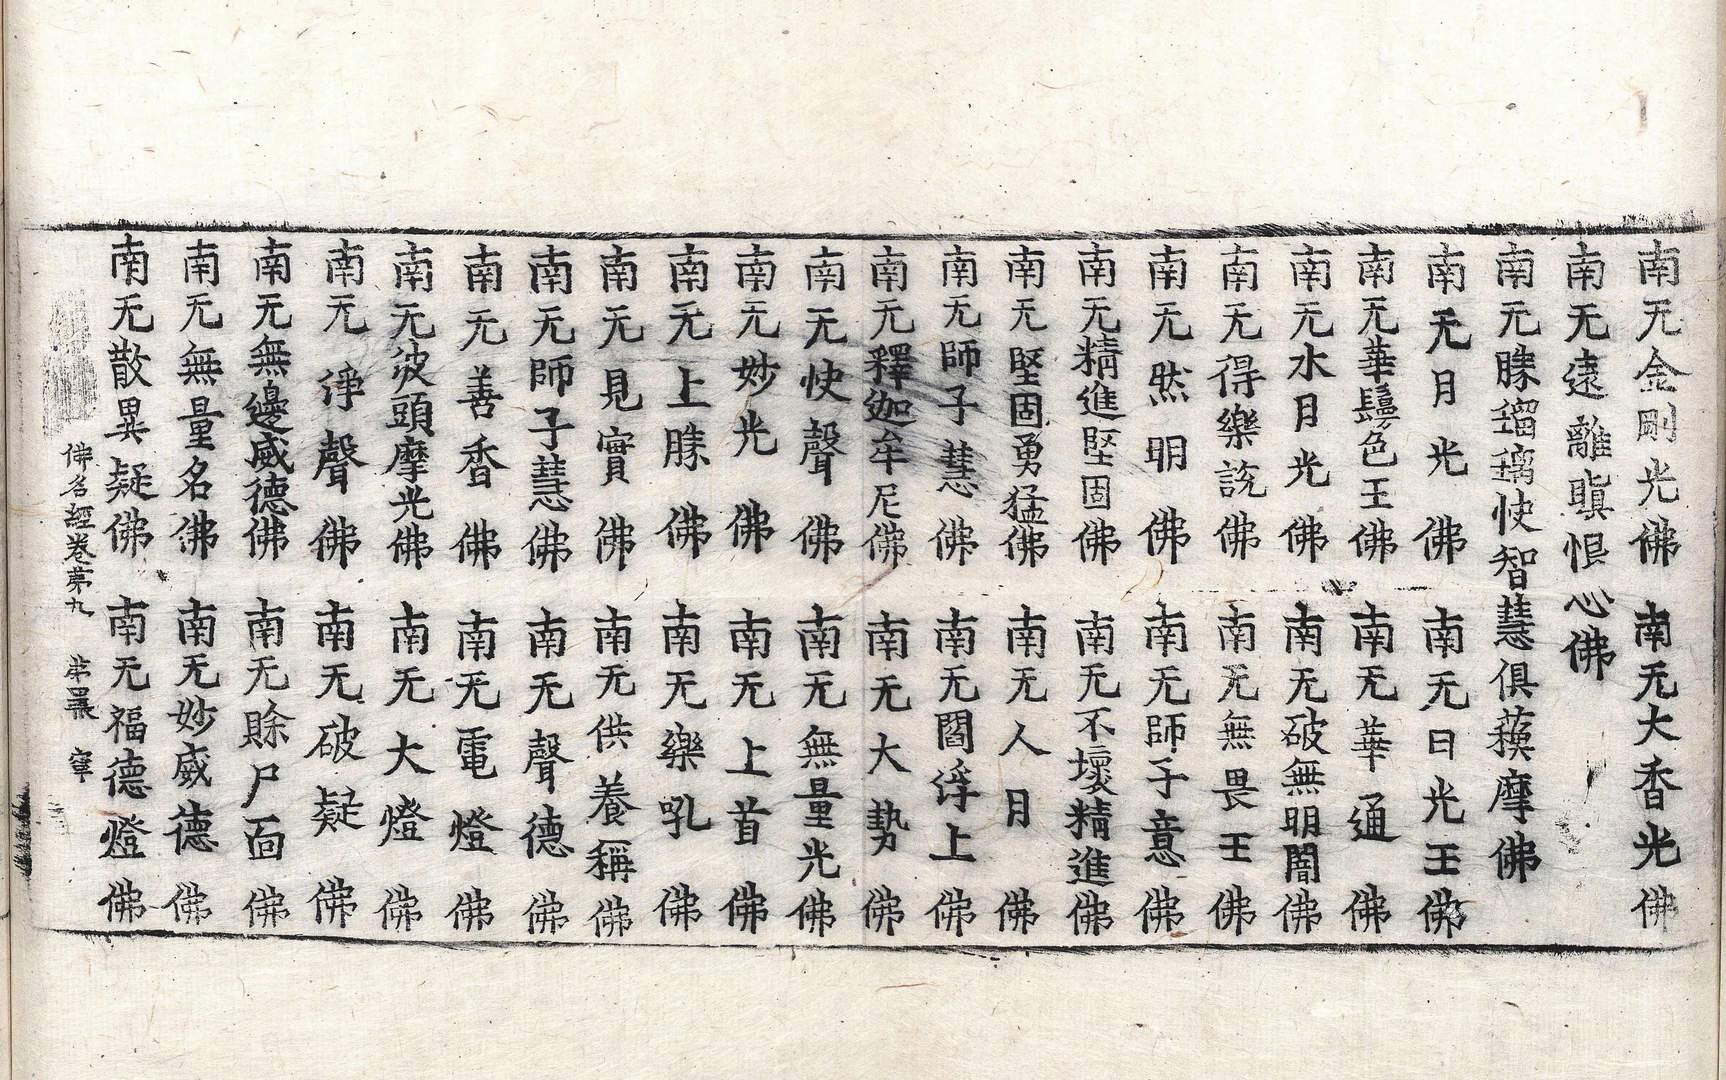 南无金剛光佛 南无大香光佛
南无遠離瞋恨心佛
南无勝瑠璃快智慧俱蘓摩佛
南无月光佛 南无日光王佛
南无華鬘色王佛 南无華通佛
南无水月光佛 南无破無明闇佛
南无得樂說佛 南无無畏王佛
南无然明佛 南无師子意佛
南无精進堅固佛 南无不壞精進佛
南无堅固勇猛佛 南无人月佛
南无師子慧佛 南无閻浮上佛
南无釋迦牟尼佛 南无大勢佛
南无快聲佛 南无無量光佛
南无妙光佛 南无上首佛
南无上勝佛 南无樂吼佛
南无見實佛 南无供養稱佛
南无師子慧佛 南无聲德佛
南无善香佛 南无電燈佛
南无波頭摩光佛 南无大燈佛
南无淨聲佛 南无破疑佛
南无無邊威德佛 南无賒尸面佛
南无無量名佛 南无妙威德佛
南无散異疑佛 南无福德燈佛
佛名經卷第九